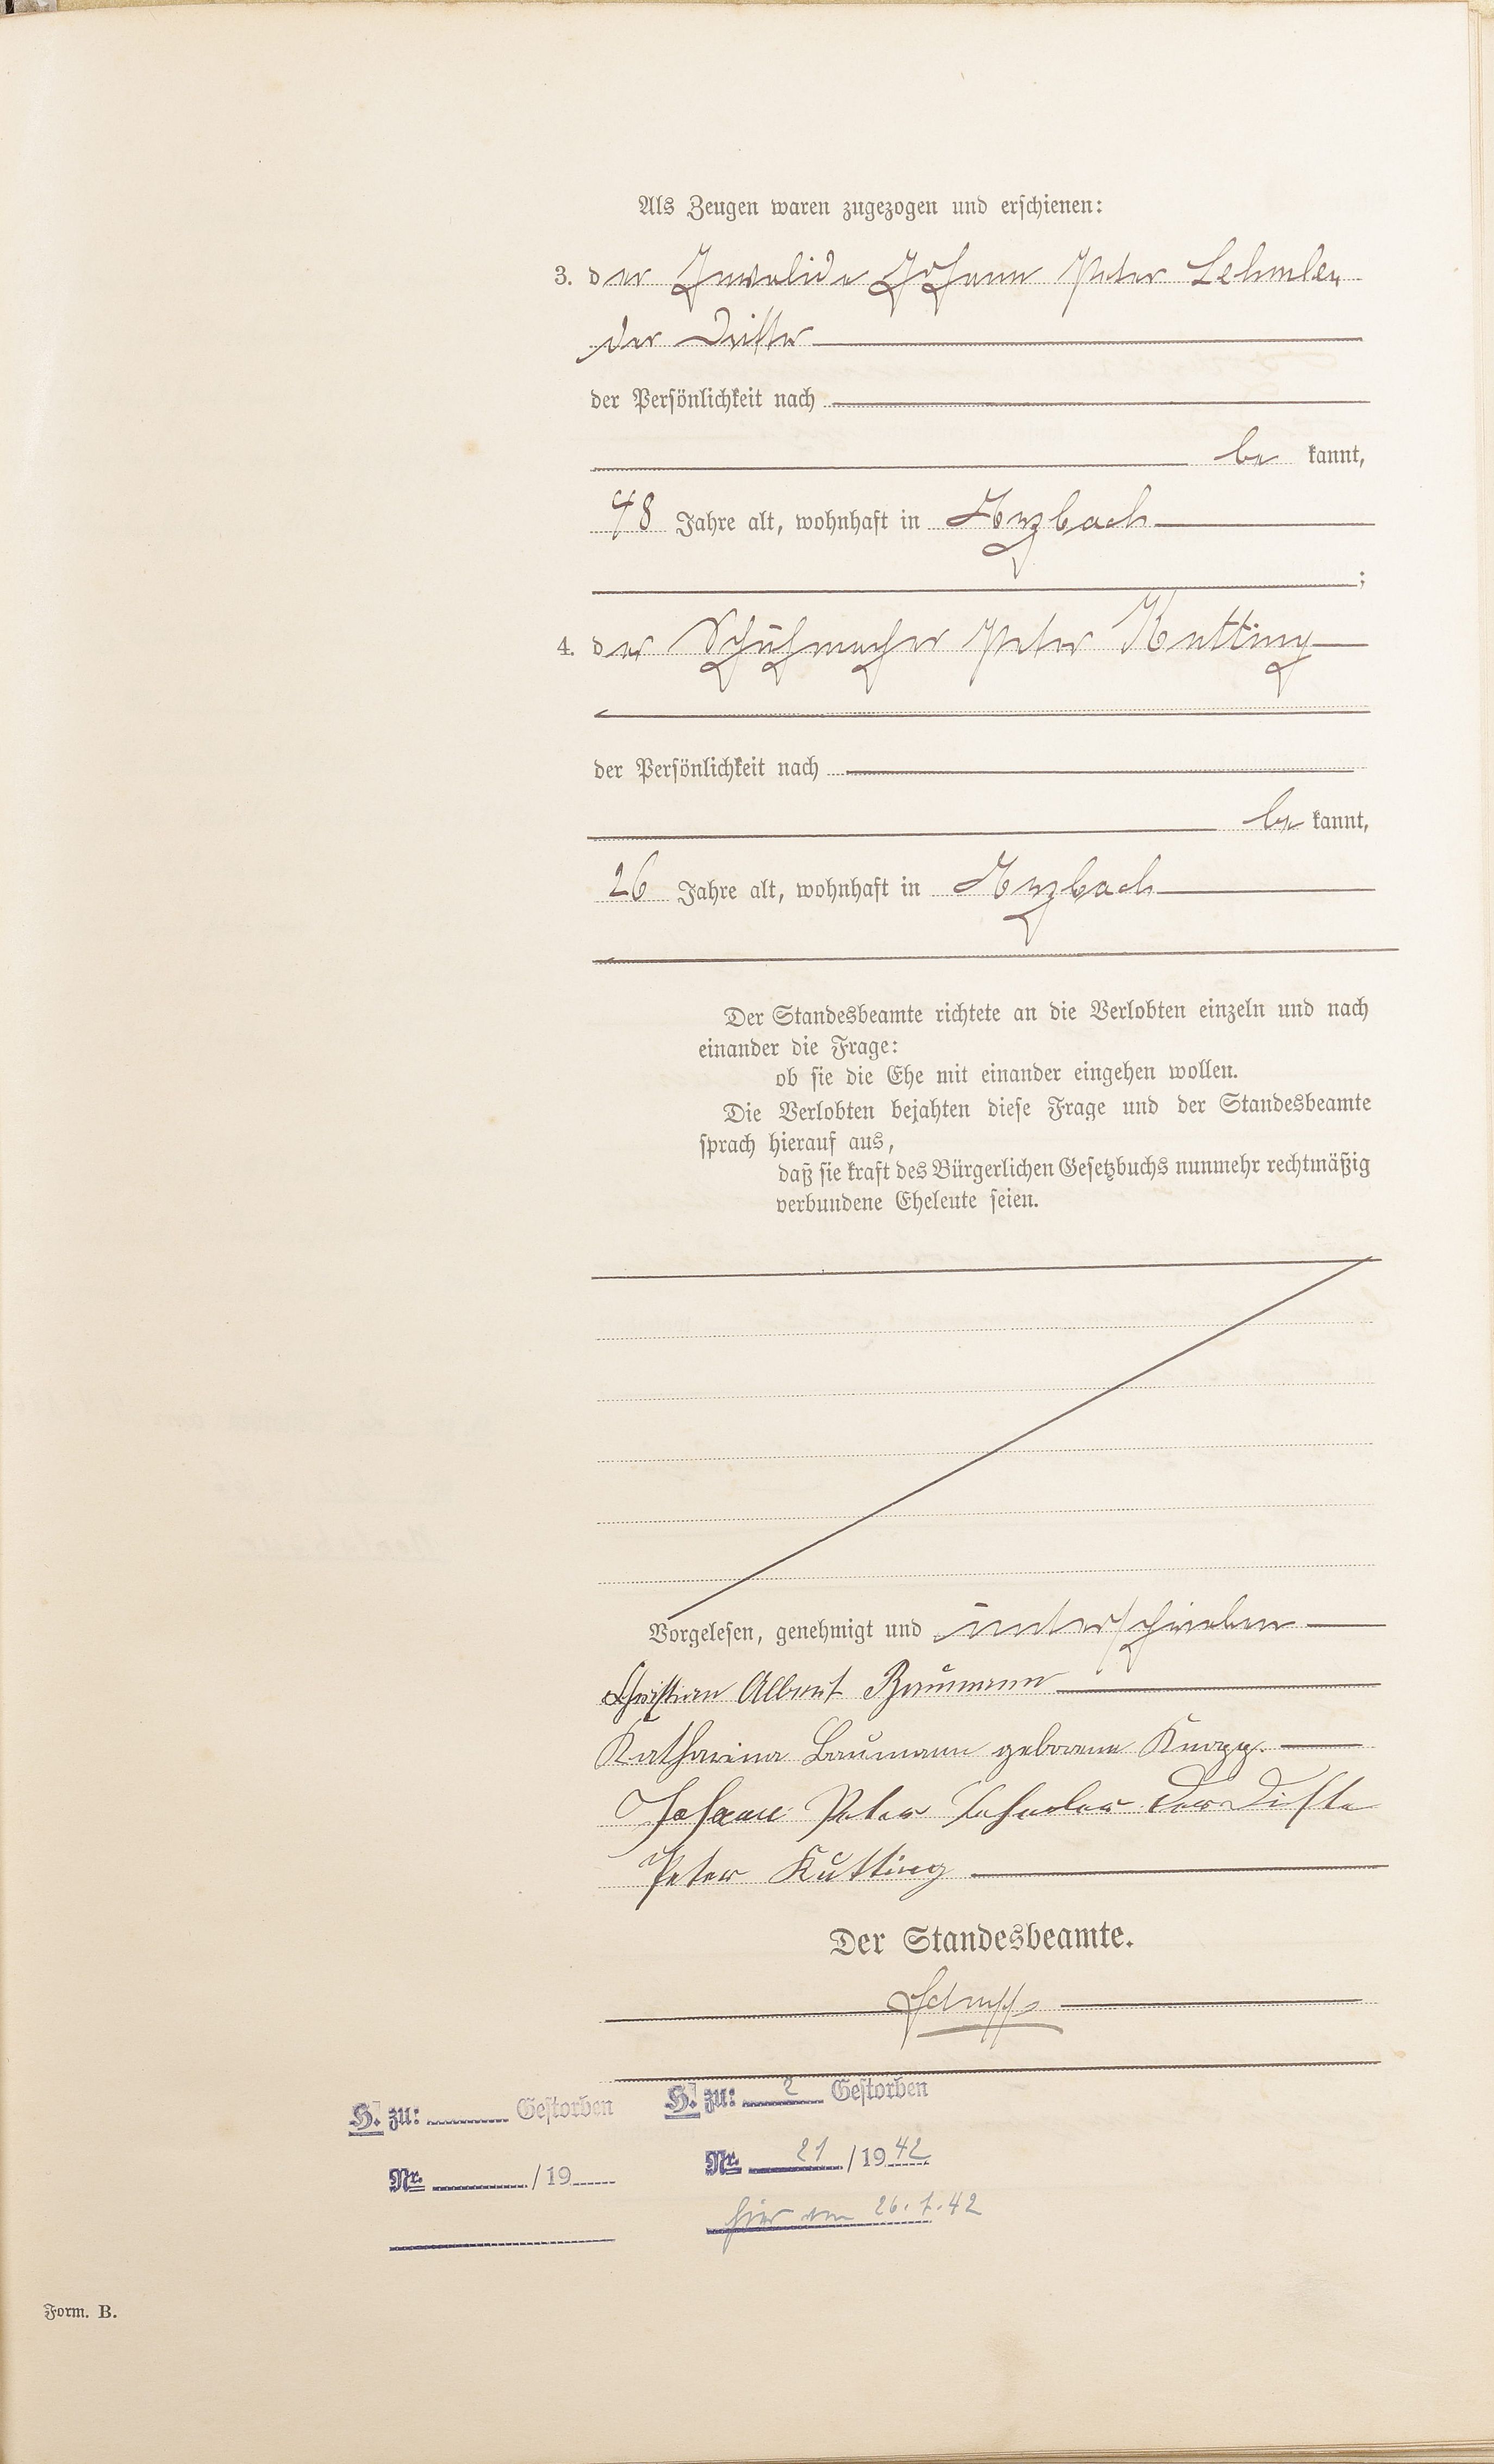 Als Zeugen waren zugezogen und erschienen:
3. der Invalide Johann Peter Lehmler
der Dritte
der Persönlichkeit nach
be kannt,
48 Jahre alt, wohnhaft in Arzbach
;
4. der Schuhmacher Peter Kutting
der Persönlichkeit nach
be kannt,
26 Jahre alt, wohnhaft in Arzbach
Der Standesbeamte richtete an die Verlobten einzeln und nach
einander die Frage:
ob sie die Ehe mit einander eingehen wollen.
Die Verlobten bejahten diese Frage und der Standesbeamte
sprach hierauf aus,
daß sie kraft des Bürgerlichen Gesetzbuchs nunmehr rechtmäßig
verbundene Eheleute seien.
Vorgelesen, genehmigt und unterschrieben
Christian Albert Baumann
Katharina Baumann geborene Knopp.
Johann Peter Lehmler der Dritte
Peter Kutting
Der Standesbeamte.
H. zu: Gestorben
Nr. /19
H. zu: 2 Gestorben
Nr. 21 /19 42
hier am 26.7.42
Form. B.